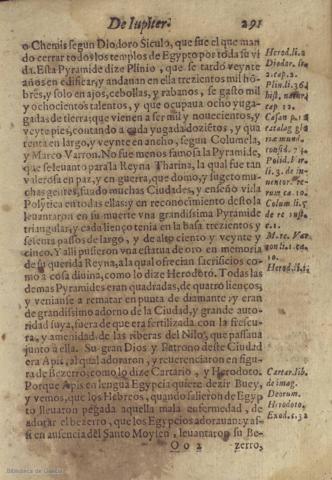 De Iupiter. 291
o Chemis segun Diodoro Siculo, que fue el que man
do cerrar todos los templos de Egypto por toda su vi
da. Esta Pyramide dize Plinio, que se tardó veynte
años en edificar, y andauan en ella trezientos mil hõ-
bres, y solo en ajos, cebollas, y rabanos, se gastó mil
y ochocientos talentos, y que ocupaua ocho yuga-
gadas de tierra: que vienen a ser mil y nouecientos, y
veynte pies, contando a cada yugada dozientos, y qua
renta en largo, y veynte en ancho, segun Columela,
y Marco Varron. No fue menos famosa la Pyramide,
que se leuanto para la Reyna Tharina, la qual fue tan
valerosa en paz, y en guerra, que domo, y sugeto mu-
chas gentes, fundo muchas Ciudades, y enseño vida
Polytica en todas ellas: y en reconocimiento desto la
leuantaron en su muerte vna grandissima Pyramide
triangular, y cada lienço tenia en la basa trezientos y
sesenta passos de largo, y de alto ciento y veynte y
cinco. Y alli pusieron vna estatua de oro en memoria
de su querida Reyna, a la qual ofrecian sacrificios co-
mo a cosa diuina, como lo dize Herodoto. Todas las
demas Pyramides eran quadradas, de quatro lienços,
y venianse a rematar en punta de diamante: y eran
de grandissimo adorno de la Ciudad, y grande auto-
ridad suya, fuera de que era fertilizada con la frescu-
ra, y amenidad de las riberas del Nilo, que passaua
junto a ella. Su gran Dios y Patron de dicha Ciudad
era Apis, al qual adorauan, y reuerenciauan en figu-
ra de Bezerro, como lo dize Cartario, y Herodoto.
Porque Apis en lengua Egypcia quiere dezir Buey,
y vemos, que los Hebreos, quando salieron de Egyp
to lleuaron pegada aquella mala enfermedad, de
adorar el bezerro, que los Egypcios adorauan: y as-
si en ausencia del Santo Moysen, leuantaron su Be-
Oo 2 zerro,
Herod. li. 2
Diodor. li.
2. cap. 2.
Plin. li. 36
hist. natur.
cap. 12.
Casan. p. 12
catalog. glo
riæ mund.
consid.
Polid. Vir.
li. 3. de in-
uentor. re-
rum ca. 10.
Colum. li. 5
de re rust.
c. 1.
M. re. Var
10.
Herod. li.
Cartar. lib.
de imag.
Deorum.
Herodoto.
Exod. c. 32
Biblioteca de Galicia